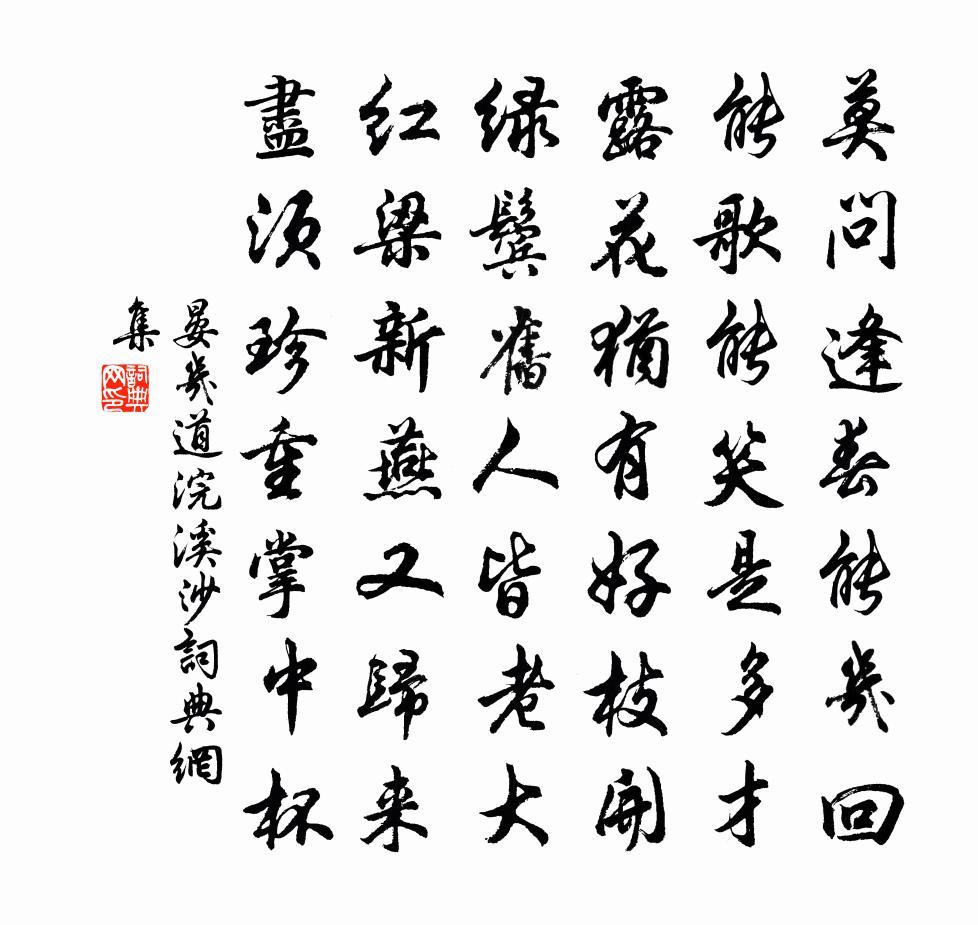 莫問逢春能幾回
能歌能笑是多才
露花猶有好枝開
绿鬓舊人皆老大
红梁新燕又歸来
盡須珍重掌中杯
晏幾道浣溪沙詞典網
集
詞典
网印